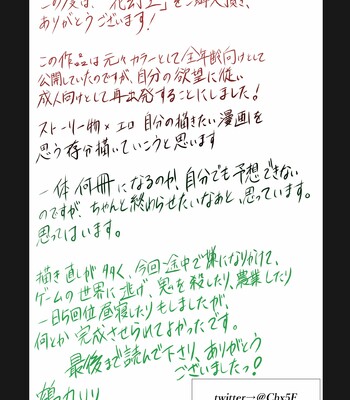 この度は、「花幻上」をご購入頂き、
ありがとうございます!
この作品は元々カラーとして全年齢向けとして
公開していたのですが、自分の欲望に従い
成人向けとして再出発することにしました!
ストーリー物×エロ 自分の描きたい漫画を
思う存分描いていこうと思います
一体何冊になるのか、自分でも予想できない
のですが、ちゃんと終わらせたいなぁと、思っています。
思ってはいます。
描き直しが多く、今回途中で嫌になりかけて、
ゲームの世界に逃げ、鬼を殺したり、農業したり
一日5回位昼寝したりもしましたが、
何とか完成させられてよかったです。
最後まで読んで下さり、ありがとう
ございましたっ!
twitter→@Cbx5F